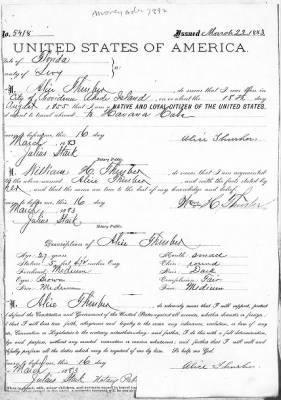 No. 5418 Issued March 22 1883
UNITED STATES OF AMERICA.
State of Florida
County of Levy
I, Alice Thurber, do swear that I was born in
City of Providence Rhode Island, on or about the 15th day
August, 1855 that I am a NATIVE AND LOYAL CITIZEN OF THE UNITED STATES,
about to travel abroad to Havana Cuba
before me, this 16 day
March 1883
Alice Thurber
Julius Stark
Notary Public
I, William H. Thurber, do swear that I am acquainted
with the above named Alice Thurber, and with the facts stated by
her, and that the same are true to the best of my knowledge and belief.
before me, this 16 day
March 1883
Wm H Thurber
Julius Stark
Notary Public
Description of Alice Thurber
Age: 27 years Mouth: small
Stature: 5 feet inches Eng. Chin: round
Forehead: Medium Hair: Dark
Eyes: Brown Complexion: Fair
Nose: Medium Face: Medium
I, Alice Thurber, do solemnly swear that I will support, protect
and defend the Constitution and Government of the United States against all enemies, whether domestic or foreign;
that I will bear true faith, allegiance and loyalty to the same, any ordinance, resolution, or law of any
State, Convention or Legislature to the contrary notwithstanding; and further, that I do this with a full determination,
pledge and purpose, without any mental reservation or evasion whatsoever; and further that I will well and
faithfully perform all the duties which may be required of me by law. So help me God.
before me, this 16 day
March 1883
Alice Thurber
Julius Stark Notary Pub